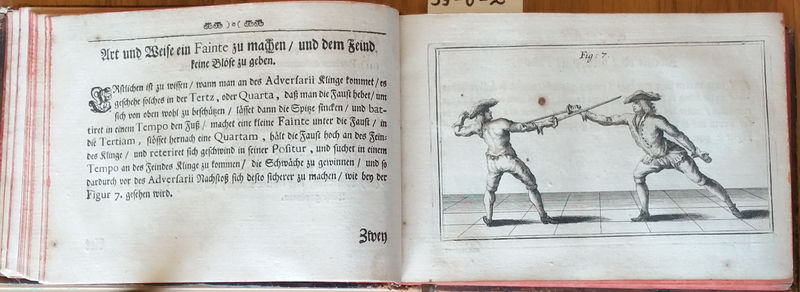 Art und Weise ein Fainte zu machen / und dem Feind
keine Blöse zu geben.
ERstlichen ist zu wissen / wann man an des Adversarii Klinge kommet / es
geschehe solches in der Tertz, oder Quarta, daß man die Faust hebet / um
sich von oben wohl zu beschützen / lässet dann die Spitze sincken / und bat-
tiret in einem Tempo den Fuß / machet eine kleine Fainte unter die Faust / in
die Tertiam / stösset hernach eine Quartam, hält die Faust hoch an des Fein-
des Klinge / und reteriret sich geschwind in seiner Positur, und suchet in einem
Tempo an des Feindes Klinge zu kommen / die Schwäche zu gewinnen / und so
dardurch vor des Adversarii Nachstoß sich desto sicherer zu machen / wie bey der
Figur 7. gesehen wird.
Zwey
Fig: 7.